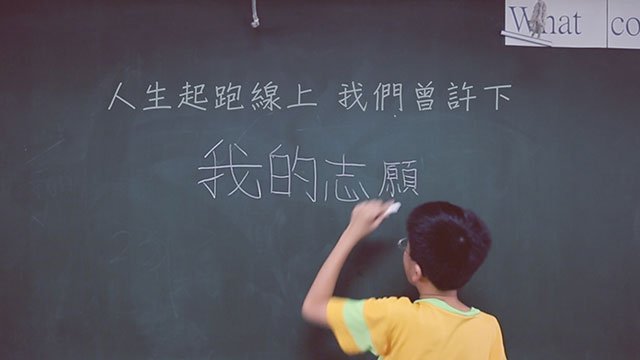 What
co
人生起跑線上 我們曾許下
我的志願